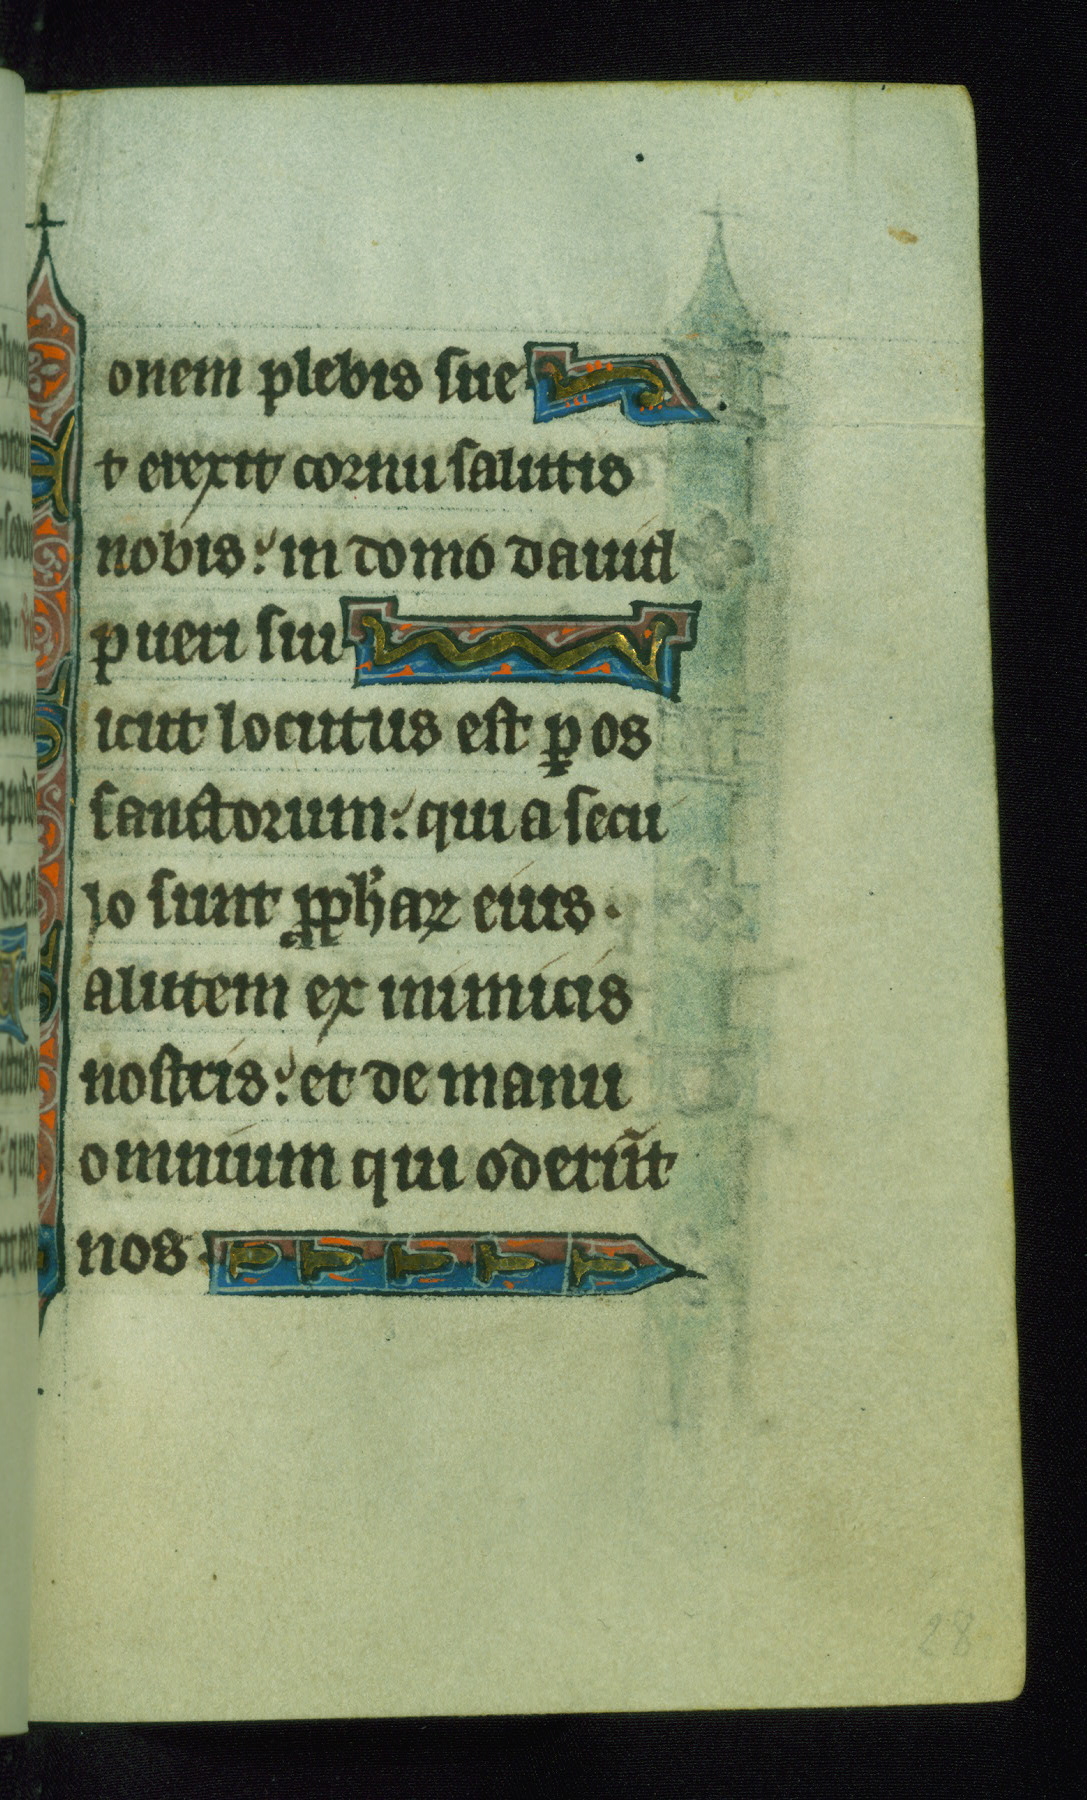 onem plebis sue
Et erexit cornu salutis
nobis: in domo dauid
pueri sui
Sicut locutus est ꝑ os
sanctorum: qui a secu
lo sunt ꝓphaꝝ eius.
Salutem ex inimicis
nostris: et de manu
omnium qui oderūt
nos
28